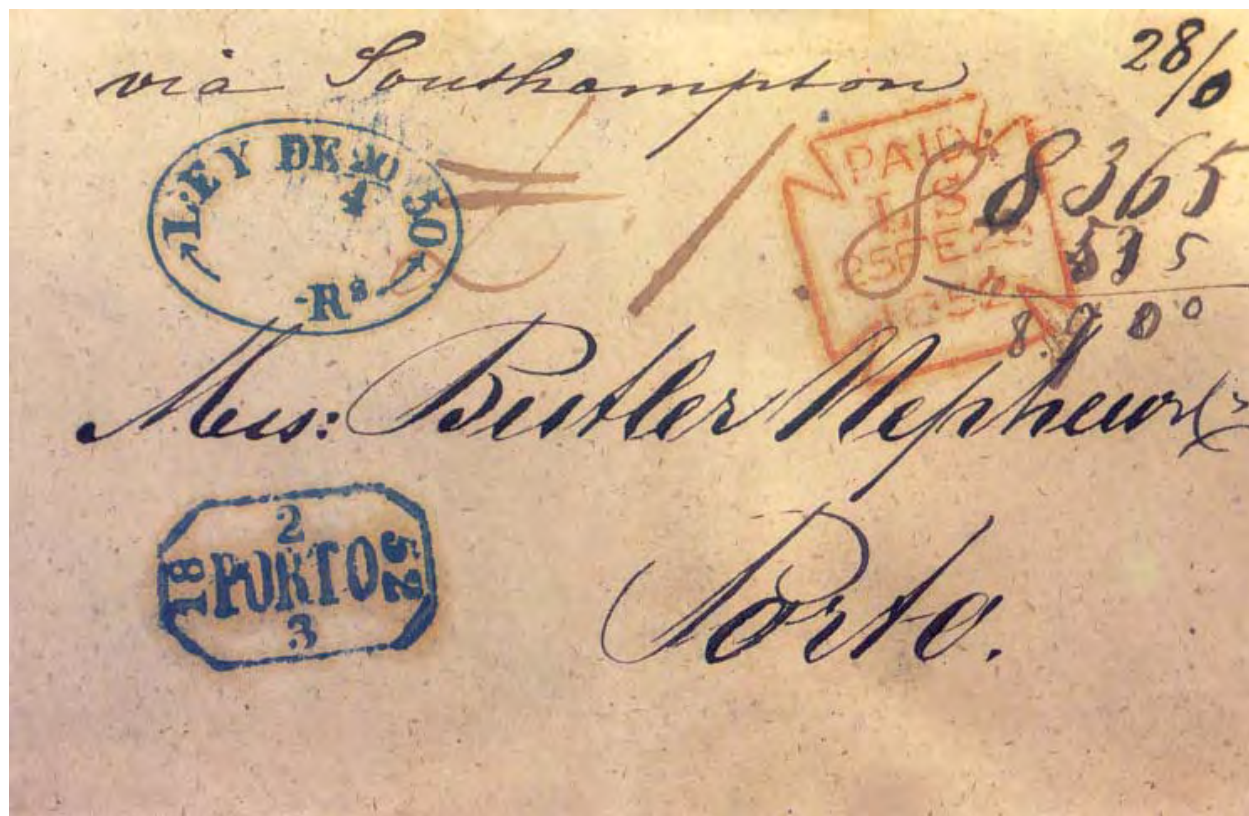 via Southampton
28/0
LEY DE 20 50
4
Rs
PAID
25FE22
1852
8365
535
8.900
Mess: Butler Nephew &
2
18 PORTO 52
3
Porto.